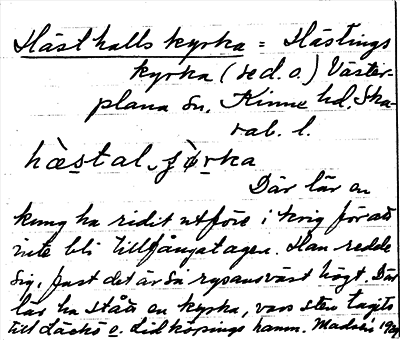 Hästhalls kyrka = Hästings
kyrka (se d. o.) Väster-
plana sn. Kinne hd. Ska-
rab. l.
hæstal jørka
Där lär en
kung ha ridit utför i krig för att
inte bli tillfångatagen. Han redde
sig, fast det är så rysansvärt högt. Där
lär ha stått en kyrka, vars sten tagits
till Läckö o. Lidköpings hamn.